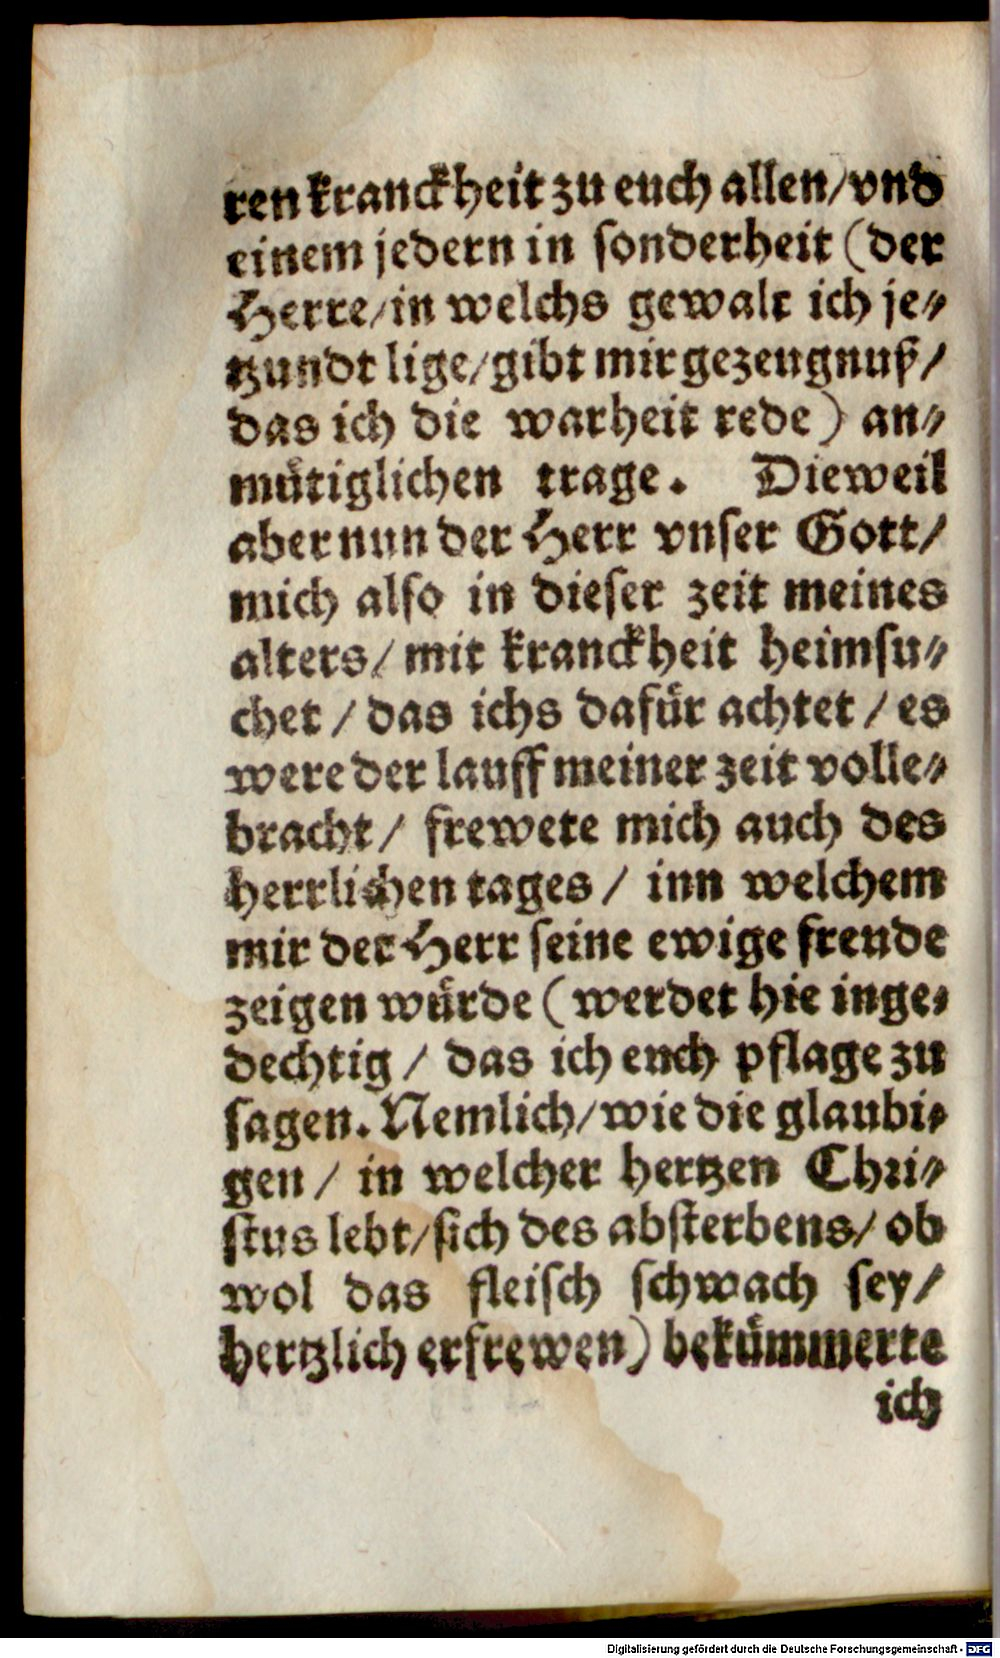 ren kranckheit zu euch allen/vnd
einem jedern in sonderheit (der
Herre/in welchs gewalt ich je⸗
tzundt lige/gibt mir gezeugnuß/
das ich die warheit rede) an⸗
mütiglichen trage. Dieweil
aber nun der Herr vnser Gott/
mich also in dieser zeit meines
alters/ mit kranckheit heimsu⸗
chet / das ichs dafür achtet / es
were der lauff meiner zeit volle⸗
bracht/ frewete mich auch des
herrlichen tages / inn welchem
mir der Herr seine ewige freude
zeigen würde (werdet hie inge⸗
dechtig / das ich euch pflage zu
sagen. Nemlich/wie die glaubi⸗
gen/ in welcher hertzen Chri⸗
stus lebt/sich des absterbens/ ob
wol das fleisch schwach sey/
hertzlich erfrewen) bekümmerte
ich
Digitalisierung gefördert durch die Deutsche Forschungsgemeinschaft - DFG